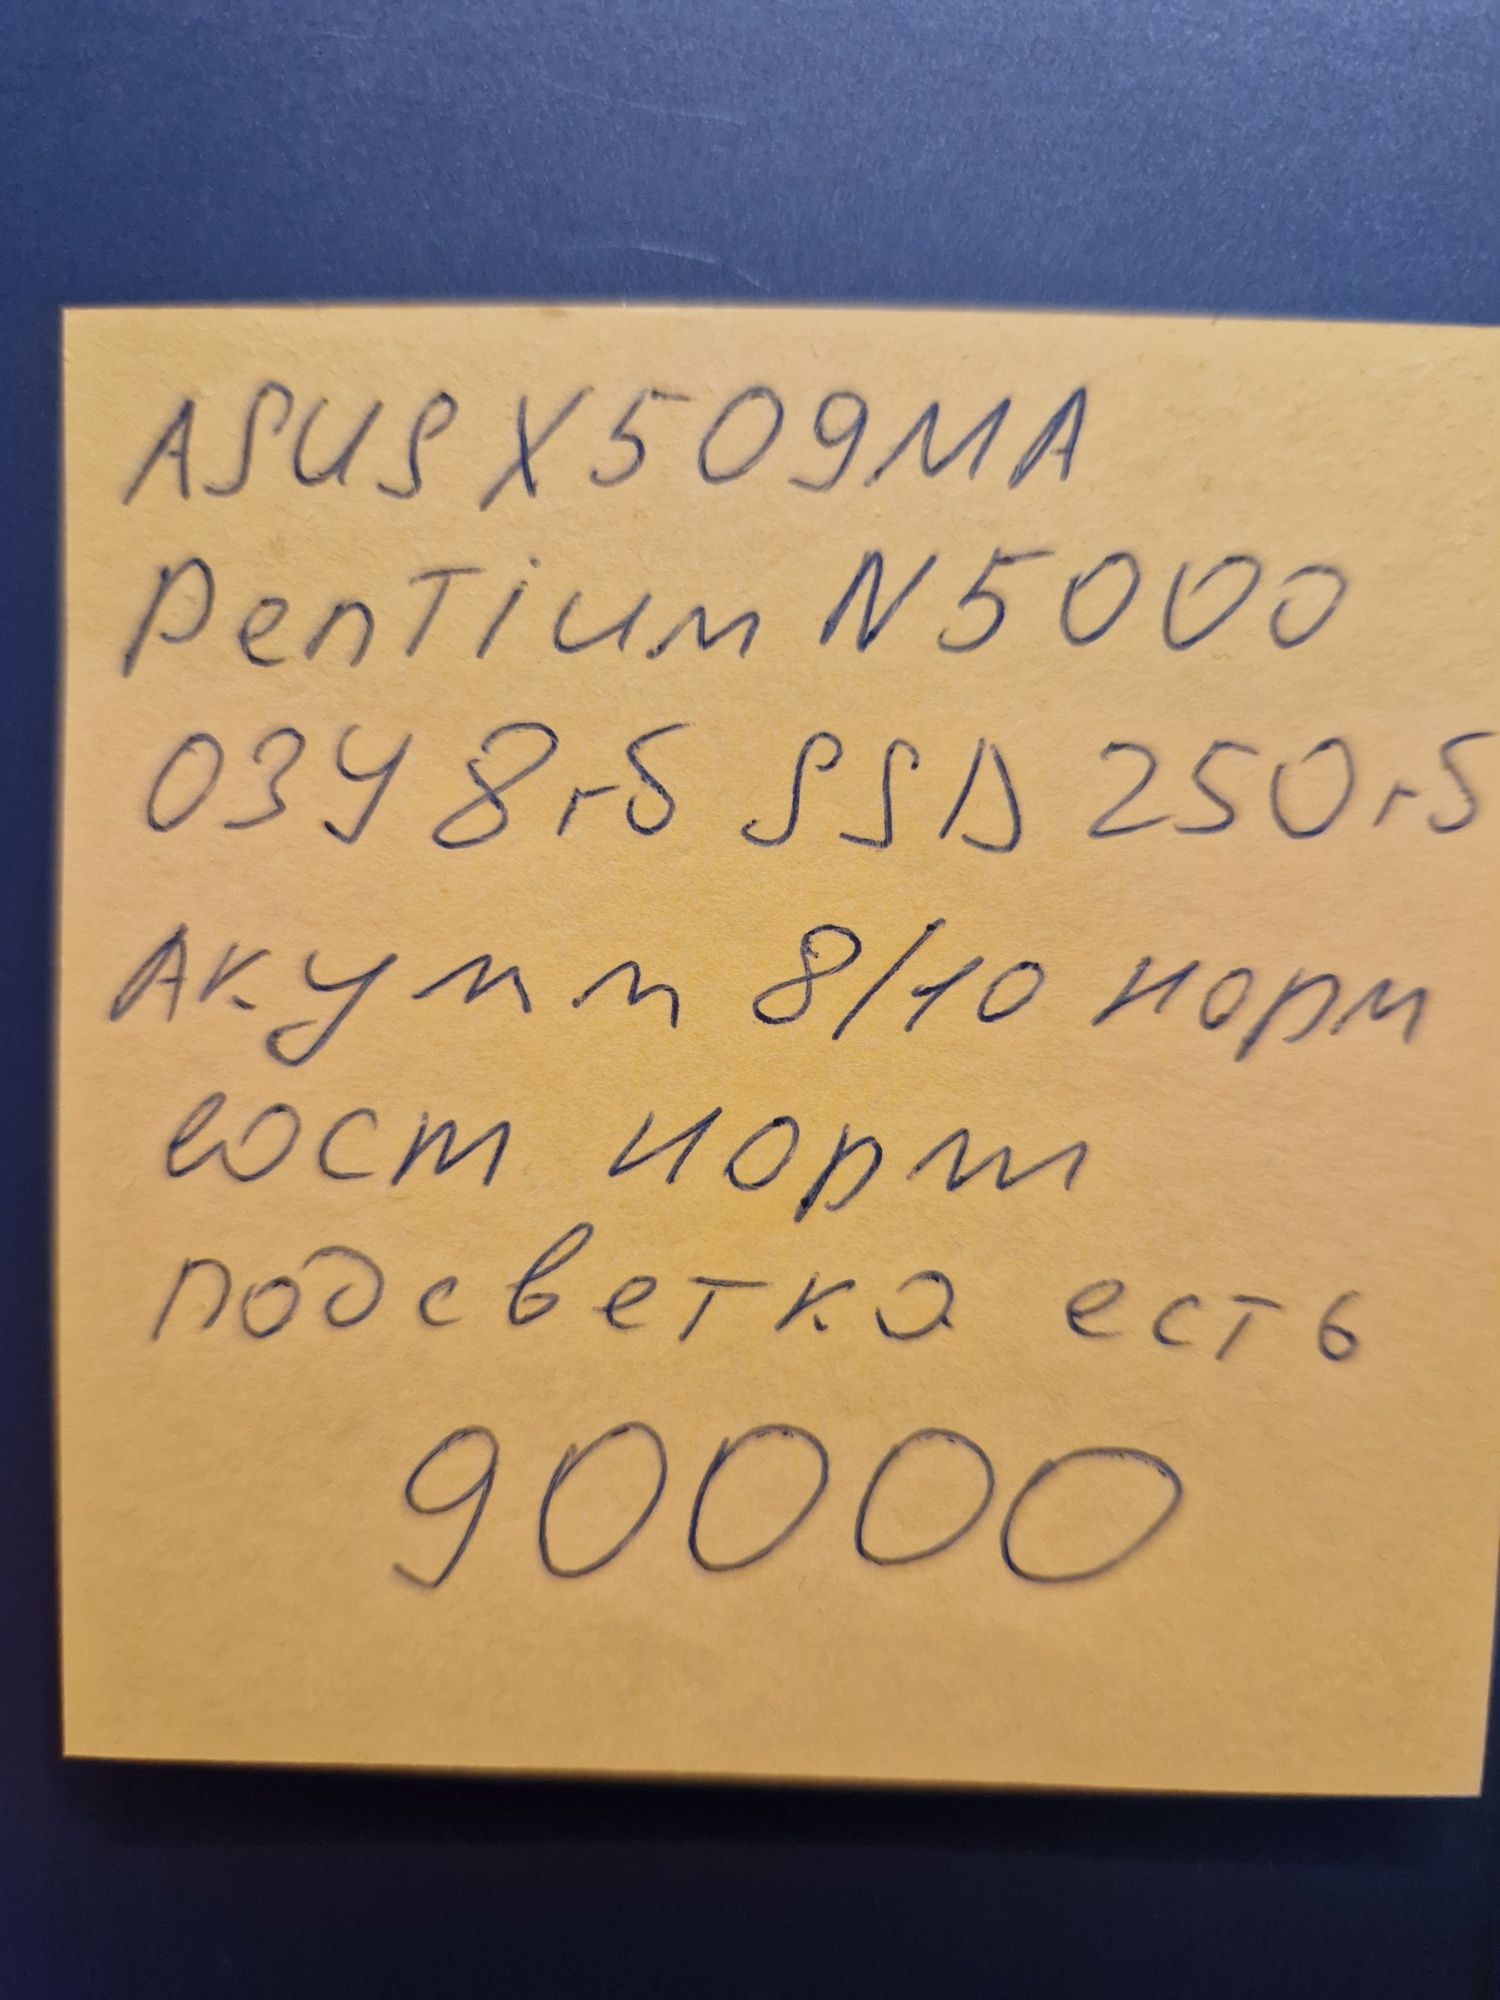 ASUS X509MA
Pentium N5000
ОЗУ 8гб SSD 250гб
Акумм 8/10 норм
сост норм
подсветка есть
90000